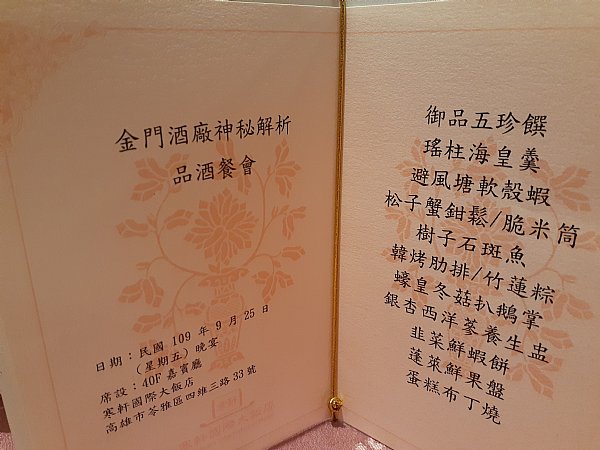 金門酒廠神秘解析
品酒餐會
日期：民國 109 年 9 月 25 日
(星期五) 晚宴
席設：40F 嘉賓廳
寒軒國際大飯店
高雄市苓雅區四維三路 33 號
寒軒國際大飯店
御品五珍饌
瑤柱海皇羹
避風塘軟殼蝦
松子蟹鉗鬆/脆米筒
樹子石斑魚
韓烤肋排/竹蓮粽
蠔皇冬菇扒鵝掌
銀杏西洋蔘養生盅
韭菜鮮蝦餅
蓬萊鮮果盤
蛋糕布丁燒